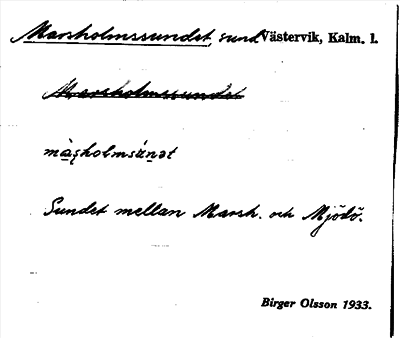 Marsholmssundet, sund Västervik, Kalm. l.
Marsholmssundet
màs̨holmsúnət
Sundet mellan Marsh. och Mjödö.
Birger Olsson 1933.